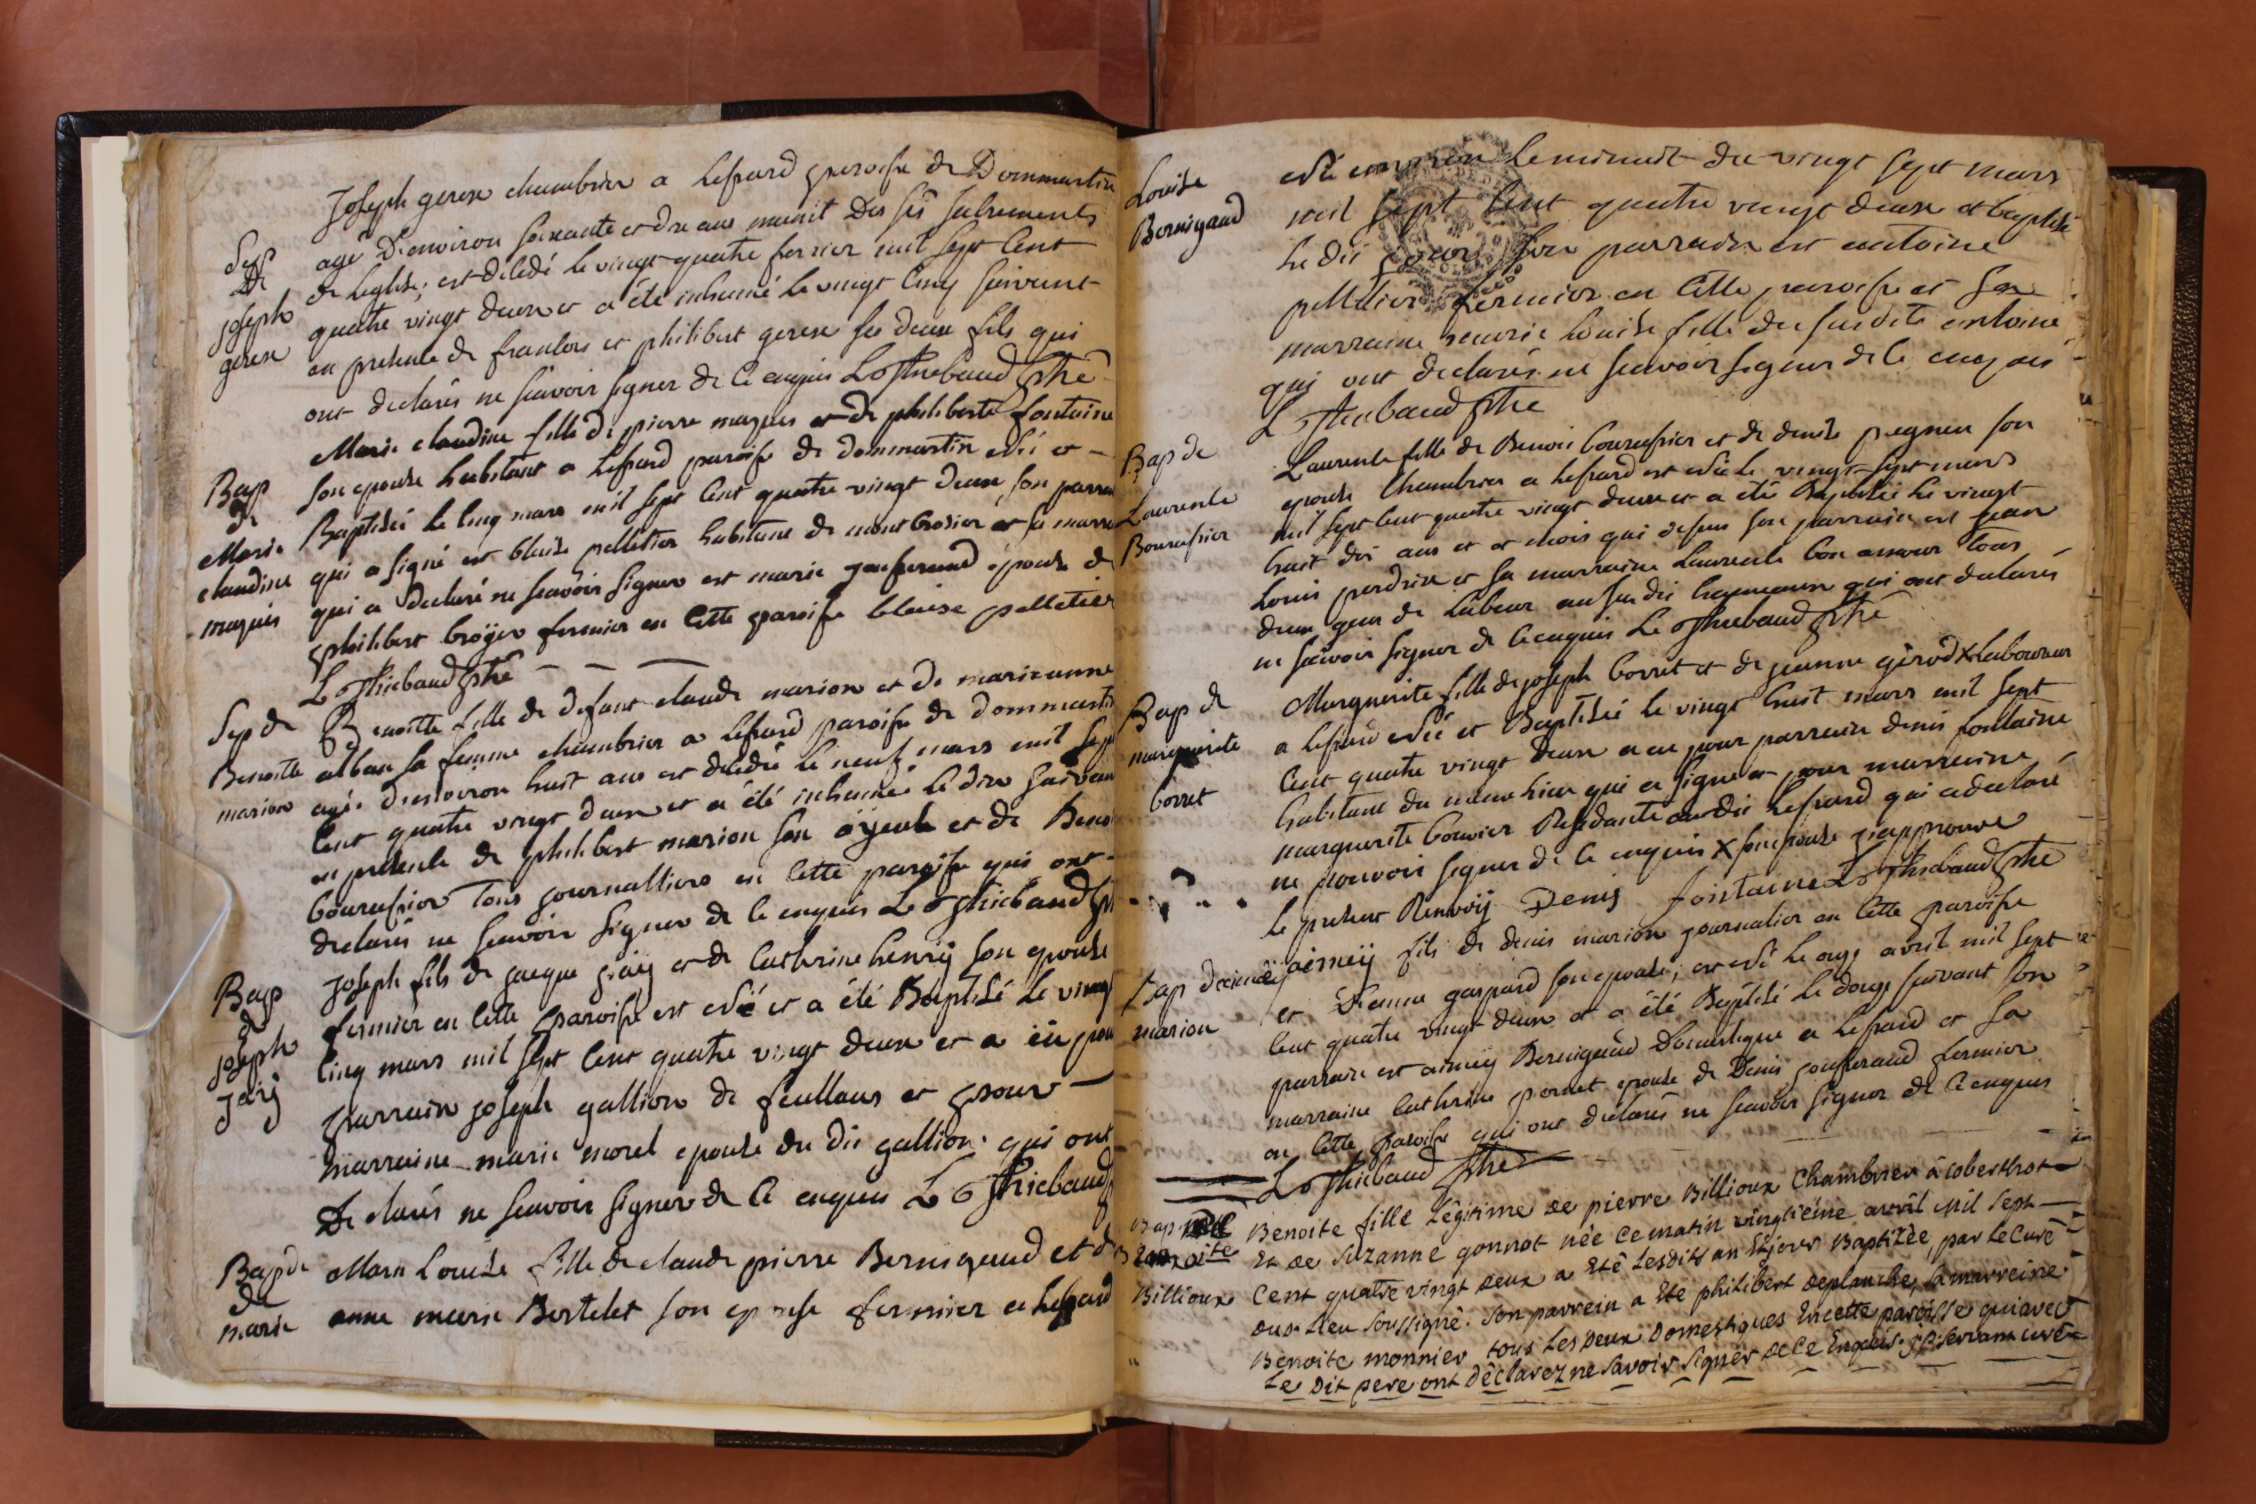 Joseph gerex chambrier a lesfard paroisse de Dommartin
Sep
de
joseph
gerex
agé D'environ soixante et dix ans munit Des sts sacrements
de leglise; est décédé le vingt quatre fevrier mil sept cent
quatre vingt deux et a été inhumé le vingt cinq suivant
en presence de francois et philibert gerex ses deux fils qui
ont declarés ne scavoir signer de ce enquis L G Thiebaud ptre
Bap
de
Marie
claudine
maquis
Marie claudine fille de pierre maquis et de philiberte fontaine
son epouse habitant a lesfard paroisse de dommartin est née et
Baptisée le cinq mars mil sept cent quatre vingt deux, son parrain
qui a signé est blaise pelletier habitant de et sa marraine
qui a declaré ne scavoir signer est marie epouse de
philibert broyer fermier en cette paroisse blaise pelletier
L G Thiebaud ptre
Sep de
Benoitte
marion
Benoitte fille de defunt claude marion et de marieanne
alban sa femme chambrier a lesfard paroisse de dommartin
agée d'environ huit ans est décédée le neuf mars mil sept
cent quatre vingt deux et a été inhumée le dix suivant
en presence de philibert marion son ayeul et de
bourcfrier tous journalliers en cette paroisse qui ont
declarés ne scavoir signer de ce enquis L G Thiebaud ptre
Bap
de
joseph
jarÿ
Joseph fils de jacque jarÿ et de Catherine henrÿ son epouse
fermier en cette paroisse est né et a été Baptisé le vingt
cinq mars mil sept cent quatre vingt deux et a eü pour
parrain joseph gallion de feullans et pour
marraine marie morel epouse du dit gallion. qui ont
Declarés ne scavoir signer de ce enquis L G Thiebaud
Bap de
de
marie
Marie Louise fille de claude pierre Bernigaud et de
anne marie Bertelet son epouse fermier a lesfard
Louise
Bernigaud
née environ le minuit du vingt sept mars
mil sept cent quatre vingt deux et baptisé
le dit jour son parrain est antoine
pelletier fermier en cette paroisse et sa
marraine marie louise fille du susdit antoine
qui ont declarés ne scavoir signer de ce enquis
L G Thiebaud ptre
Bap de
Laurence
Bourcfrier
Laurence fille de Benoit bourcfrier et de denise son
epouse chambrier a lesfard est née le vingt sept mars
mil sept cent quatre vingt deux et a été Baptisée le vingt
huit dit ans et mois que dessus son parrain est jean
Louis perdrix et sa marraine Laurence tous
deux gens de labeur au susdit hameaux qui ont declarés
ne scavoir signer de ce enquis L G Thiebaud ptre
Bap de
marguerite
borret
Marguerite fille de joseph borret et de jeanne gérod X laboureur
a lesfard née et Baptisée le vingt huit mars mil sept
cent quatre vingt deux a eu pour parrain denis fontaine
habitant du meme lieu qui a signé et pour marraine
marguerite bouvier Residante audit lesfard qui a declaré
ne pouvoir signer de ce enquis X son epouse j'approuve
le present Renvoÿ Denis fontaine L G Thiebaud ptre
Bap d'aimeÿ
marion
aimeÿ fils de denis marion journalier en cette paroisse
et Etienna gaspard son epouse; est né le onze avril mil sept
cent quatre vingt deux et a été Baptisé le douze suivant son
parrain est aimeÿ Bernigaud Domestique a lesfard et sa
marraine Cathrine pernet epouse de Denis fermier
en cette paroisse qui ont declarés ne scavoir signer de ce enquis
L G Thiebaud ptre
Bap de
Benoite
Billioux
Benoite fille Légitime de pierre Billioux Chambrier à Coberthot
Et de Suzanne gonnot née ce matin vingtiéme avril mil sept
Cent quatre vingt deux a Eté Lesdits an Et jour Baptizée, par Le Curé
dud. Lieu soussigné. Son parrein a Eté philibert deplanche, sa marreine
Benoite monnier tous Les deux domestiques En cette paroisse qui avec
Le dit pere ont déclarez ne savoir signer de ce Enquis. curé